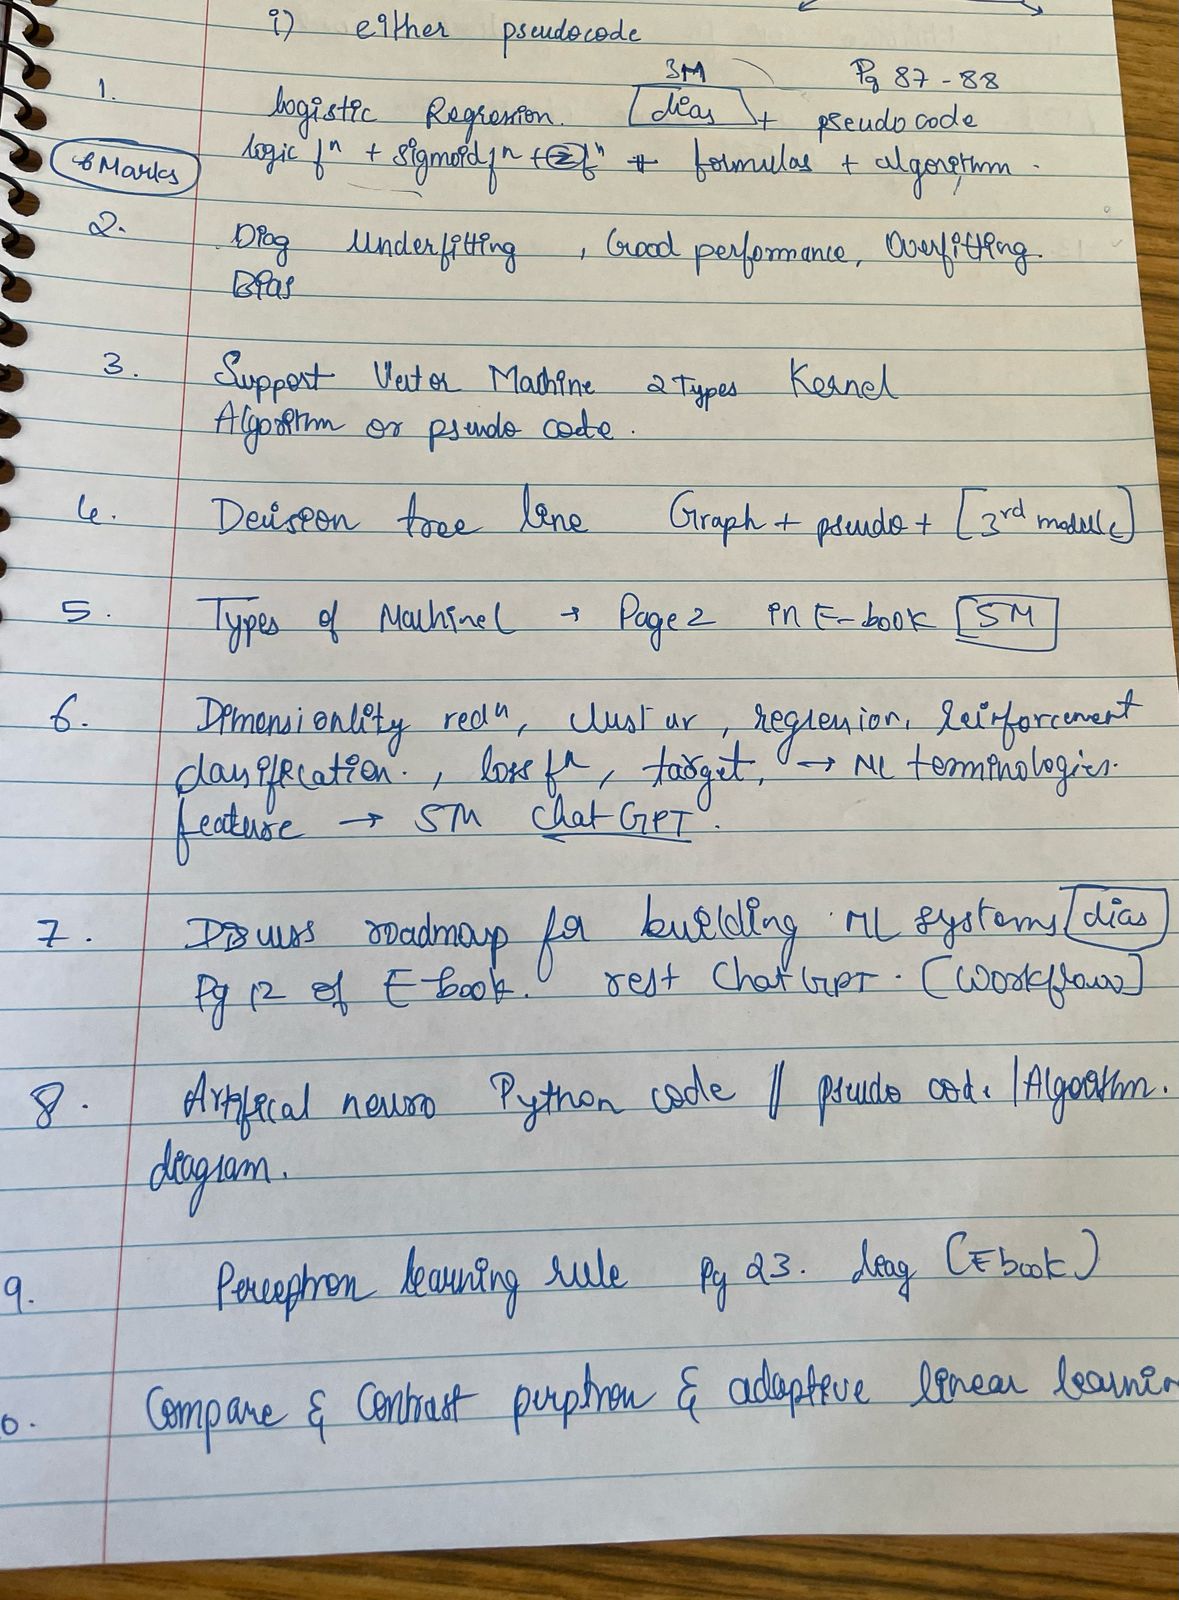 i) either pseudocode
3M Pg 87-88
1. Logistic Regression. [dias] + pseudo code
6 Marks logic fn + sigmoid fn + fn + formulas + algorithm.
2. Diag Underfitting, Good performance, Overfitting.
Bias
3. Support Vector Machine 2 Types Kernel
Algorithm or pseudo code.
4. Decision tree line Graph + pseudo + [3rd module]
5. Types of Machine L → Page 2 in E-book [5M]
6. Dimensionlity redn, clustur, regression, Reinforcement
classification., loss fn, target, → ML terminologies.
feature → 5M Chat GPT.
7. Discuss roadmap for building ML systems [dias]
Pg 12 of E-book. rest Chat GPT. [Workflow]
8. Artifical neuro Python code // pseudo code / Algorithm.
diagram.
9. Perceptron learning rule Pg 23. diag (Ebook)
0. Compare & Contrast perptron & adaptive linear learnin